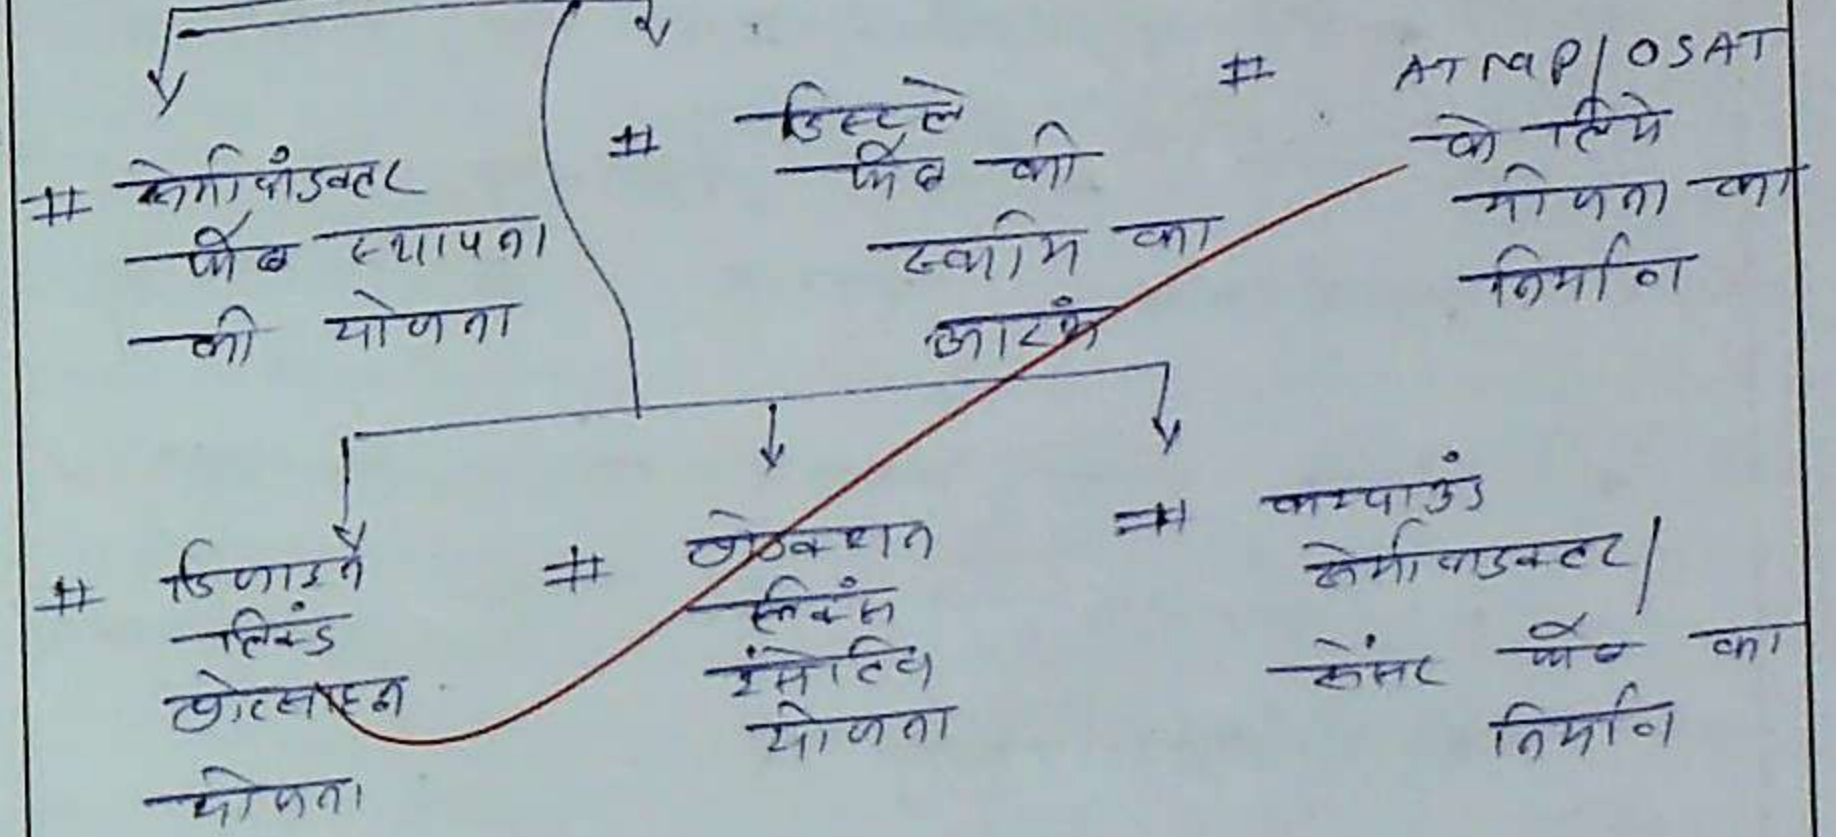 # सेमीकंडक्टर
फैब स्थापना
की योजना
# डिस्प्ले
फैब की
स्कीम का
आरंभ
# ATMP/OSAT
के लिये
योजना का
निर्माण
# डिजाइन
लिंक्ड
प्रोत्साहन
योजना
# प्रोडक्शन
लिंक्ड
इंसेंटिव
योजना
# कम्पाउंड
सेमीकाडक्टर/
सेंसर फैब का
निर्माण